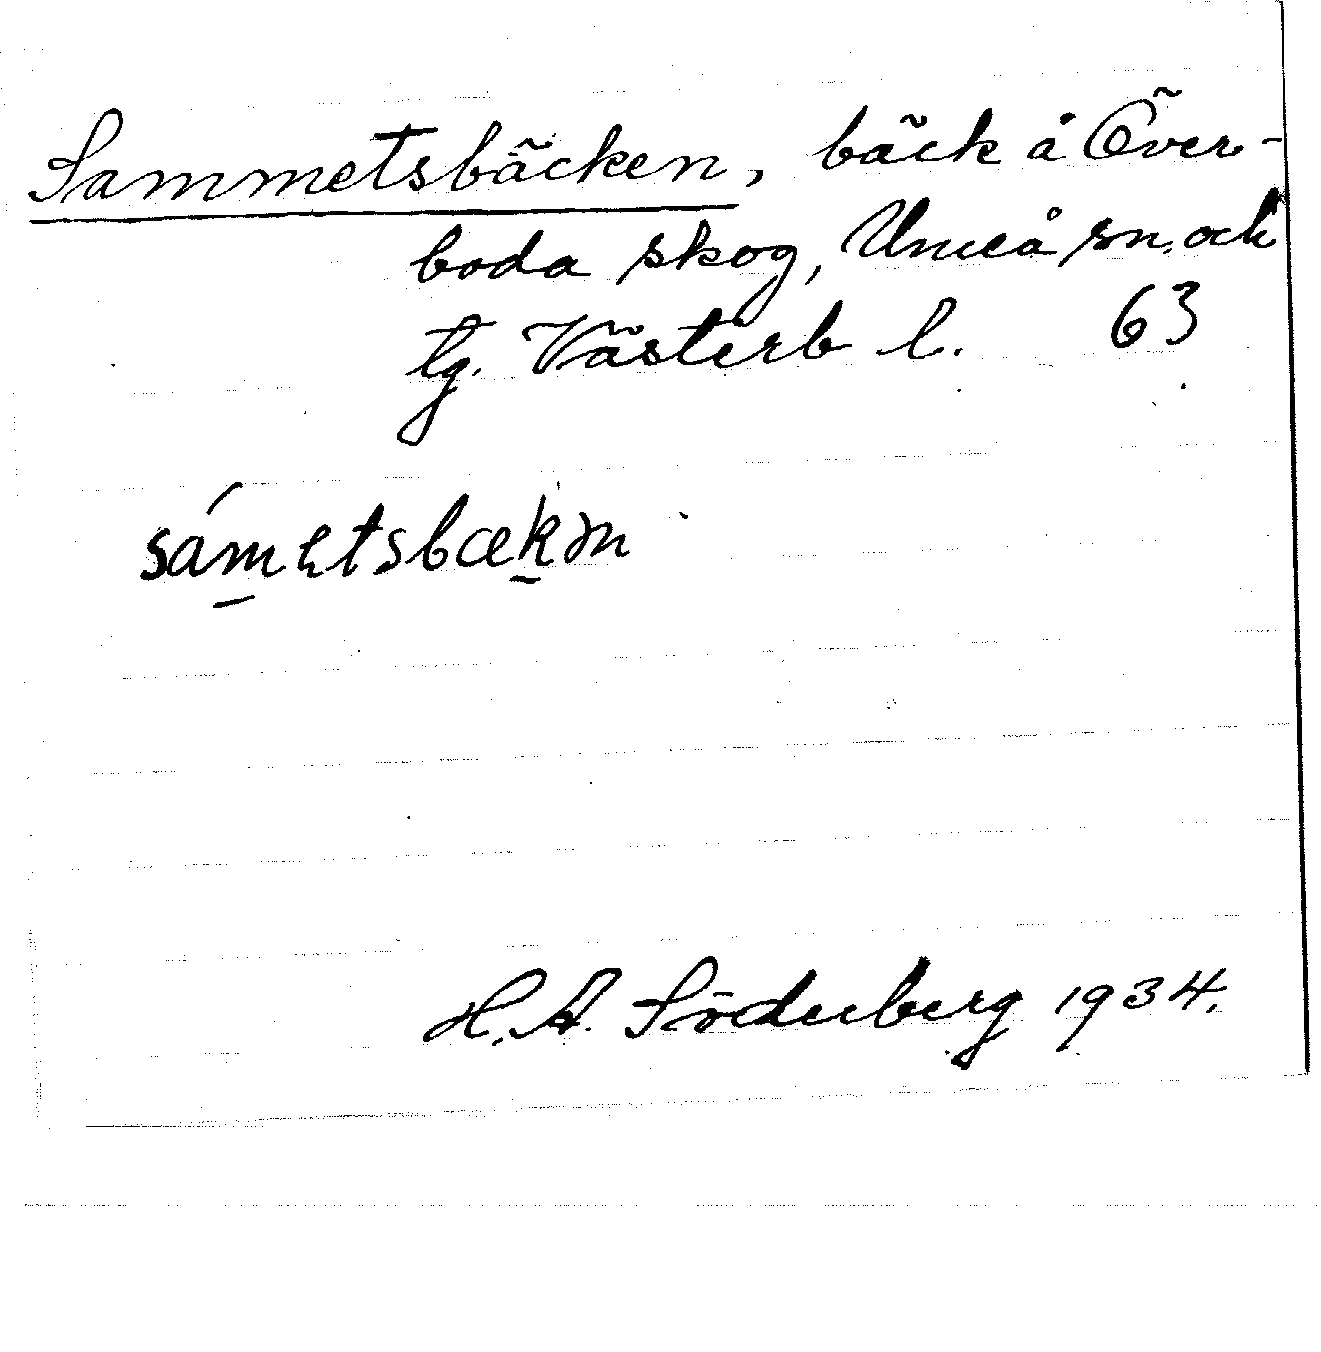 Sammetsbäcken, bäck å Över-
boda skog, Umeå sn. och
tg. Västerb l. 63
sámetsbækən
H. A. Söderberg 1934.